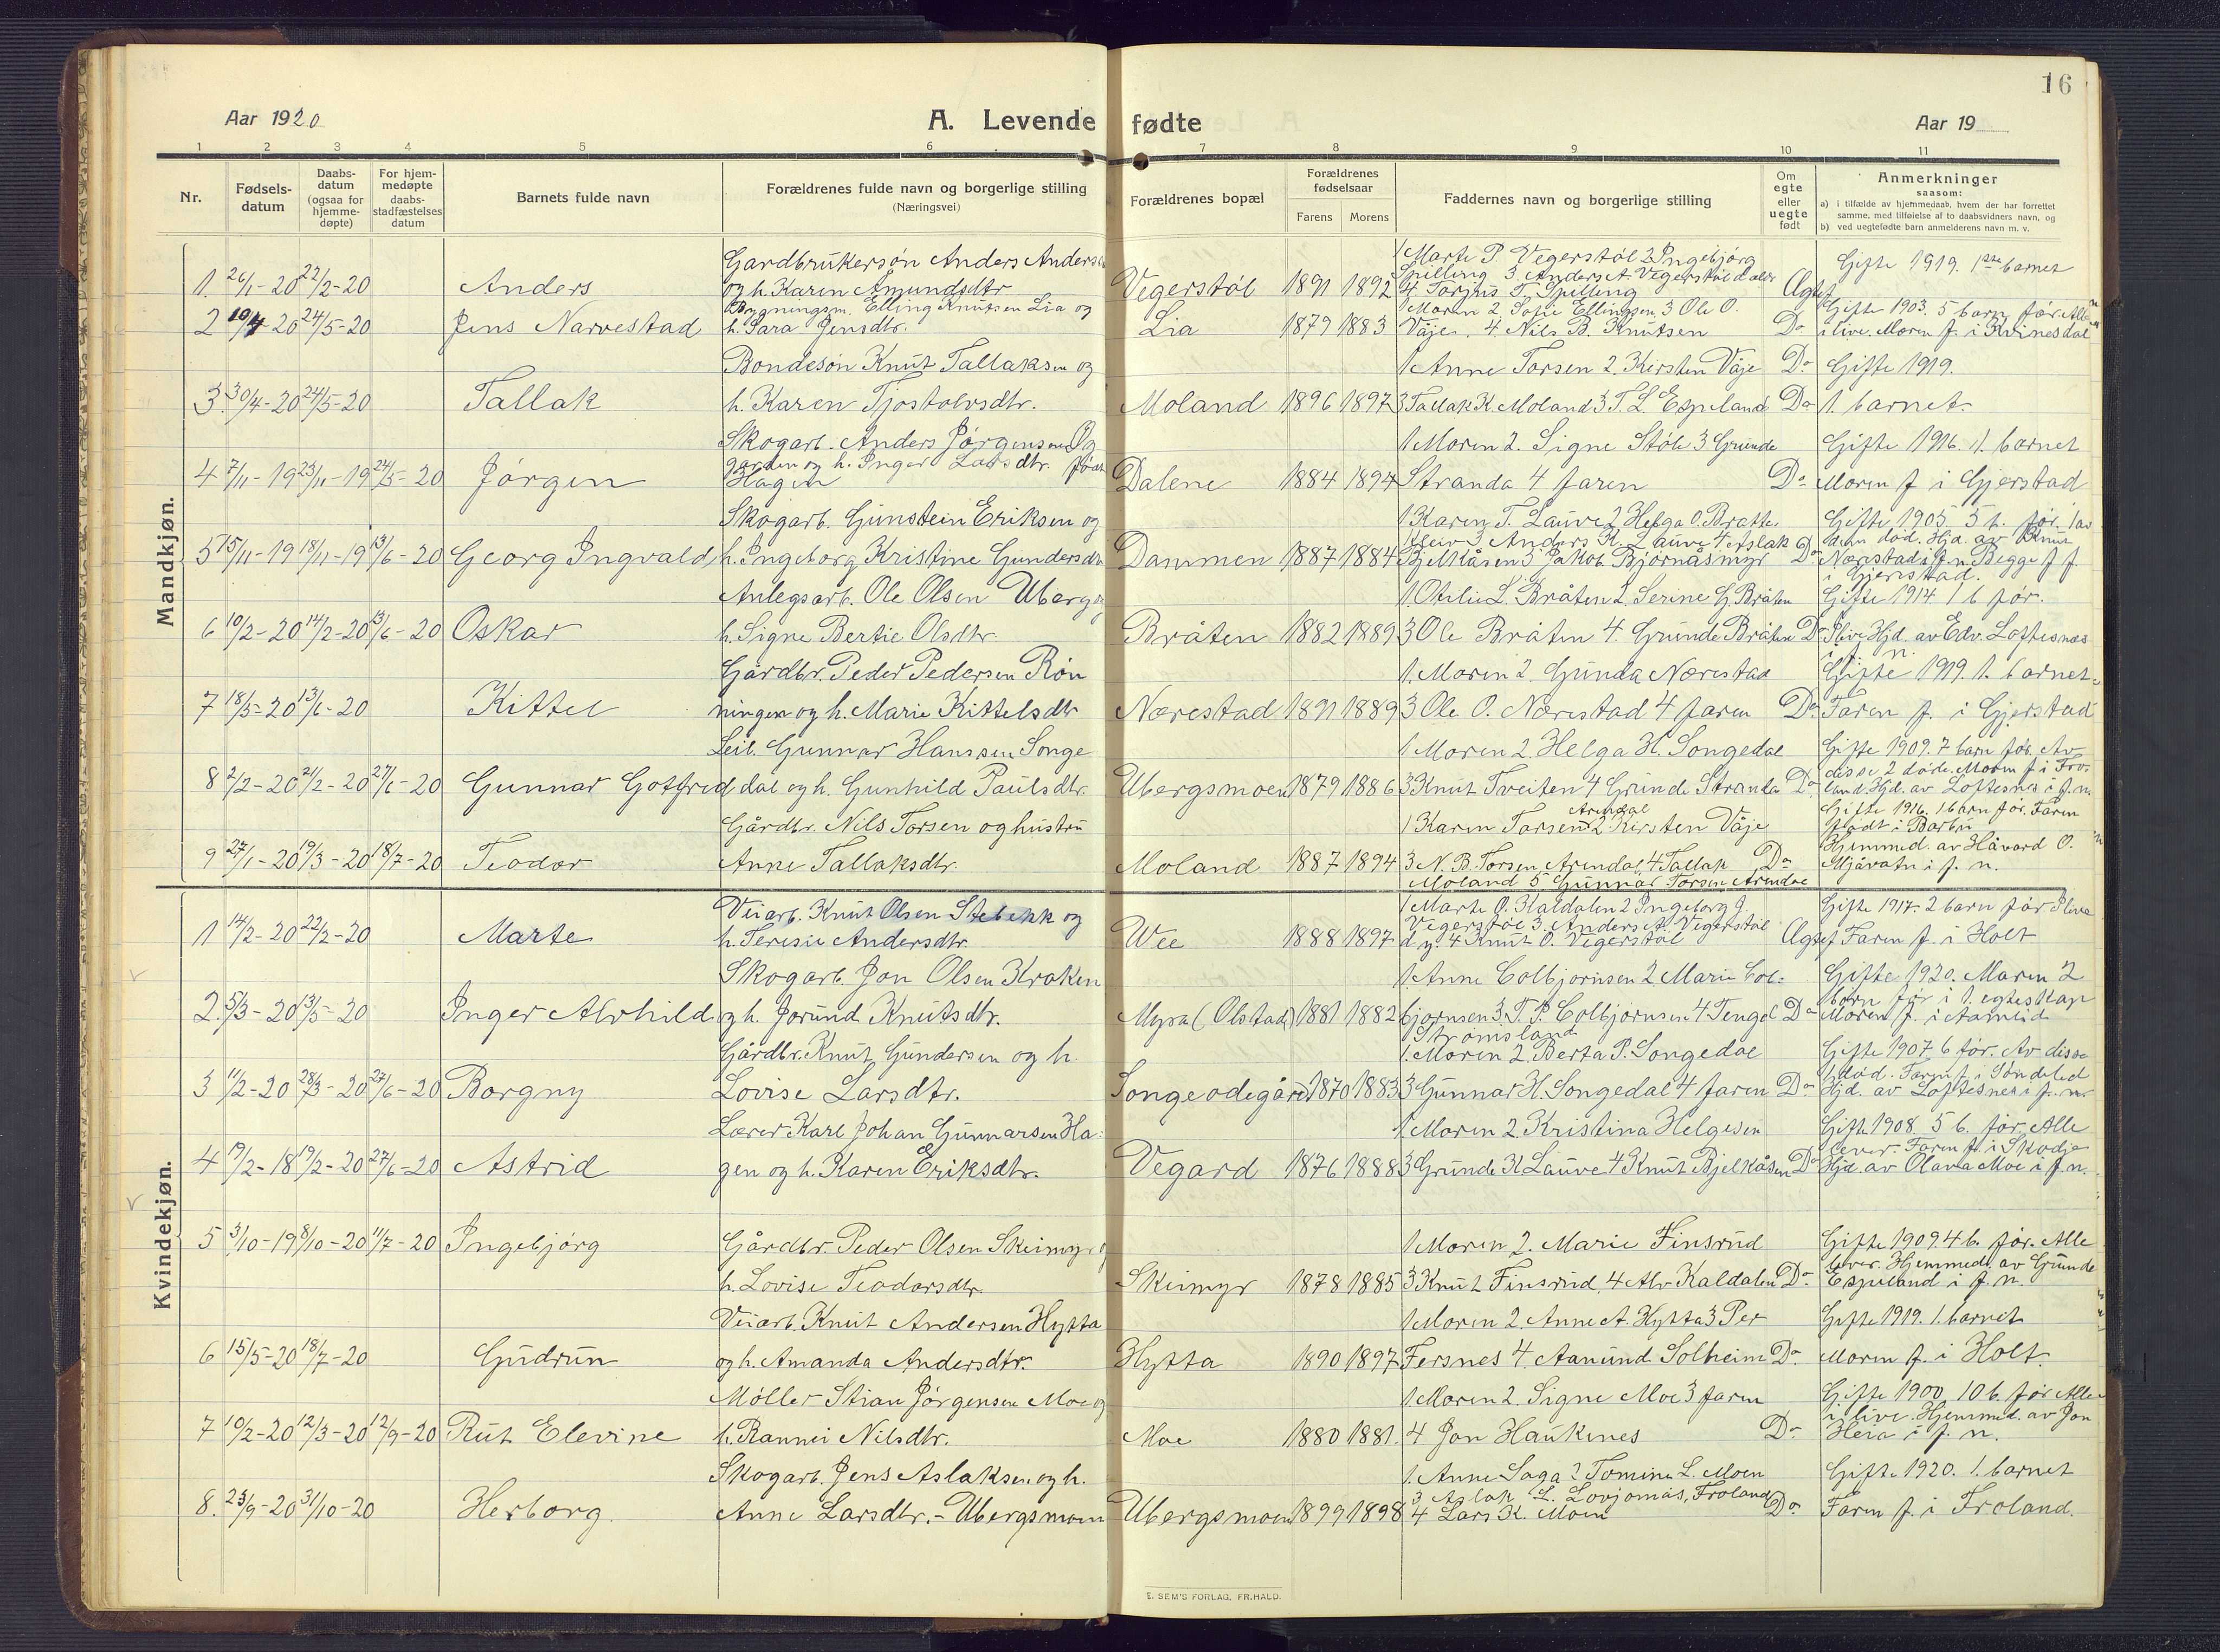 16
Aar 1920
A. Levende fødte
Aar 19
1 2 3 4 5 6 7 8 9 10 11
Nr.
Fødsels-datum
Daabs-datum (ogsaa for hjemme-døpte)
For hjem-medøpte daabs-stadfæstelses datum
Barnets fulde navn
Forældrenes fulde navn og borgerlige stilling
(Næringsvei)
Forældrenes bopæl
Forældrenes fødselsaar
Farens Morens
Faddernes navn og borgerlige stilling
Om egte eller uegte født
Anmerkninger
saasom:
a) i tilfælde av hjemmedaab, hvem der har forrettet samme, med tilføielse af to daabsvidners navn, og
b) ved uegtefødte barn anmelderens navn m. v.
Mandkjøn.
Gardbrukersøn Anders Anders
1. 26/1-20 22/2-20 Anders og h. Karen Amundsdtr Vegerstøl 1891 1892
1 Marte P. Vegerstøl 2 Ingebjørg
Spilling 3 Anders A. Vegerstøl d. eldr
4. Torjus T. Spilling
Gifte 1919. 1ste barnet
Bygningsm. Elling Knutsen Lia og
2 24/5-20 Jens Narvestad h. Sara Jensdtr. Lia 1879 1883
1 Moren 2. Sofie Ellingsen 3 Ole O.
Vaje. 4. Nils B. Knutsen Do
Gifte 1903. 5 barn før. Alle
i live. Moren f. i Kvinesdal
Bondesøn Knut Tallaksen og
3. 30/4-20 24/5-20 Tallak h. Karen Tjostolvsdtr. Moland 1896 1897
1 Anne Torsen 2. Kirsten Våje Do
3 Tallak K. Moland 3 T. L. Espeland Do
Gifte 1919.
1. barnet.
Skogarb. Anders Jørgensen
4 7/11-19 23/11-19 24/5-20 Jørgen og h. Inger Larsdtr. Dalene 1884 1894
Hagen
1 Moren 2. Signe Støle 3 Grunde
Stranda 4 faren Do
Gifte 1916. 1. barnet
Moren f i Gjerstad
Skogarb. Gunstein Eriksen og
5 15/11-19 18/11-19 13/6-20 Georg Ingvald h. Ingeborg Kristine Gundersdtr Dammen 1887 1884
1 Karen T. Lauve 2 Helga O. Bratte
kleiv 3 Anders K. Lauve 4 Aslak Do
Bjelkåsen 5 Jakob Bjørnåsmyr
Gifte 1905 5 b. før. 1 av
dem død. Hjd. av Knut
Nærestad i f. n. Begge f. f.
i Gjerstad.
Anlegsarb. Ole Olsen Uberg og
6 10/2-20 14/2-20 13/6-20 Oskar h. Signe Bertie Olsdtr Bråten 1882 1889
1. Otilie L. Bråten 2. Serine G. Bråten
3 Ole Bråten 4. Grunde Bråten Do
Gifte 1914 1 b før.
I live Hjd. av Edv. Loftesnæs
i f. n.
Gårdbr. Peder Pedersen Røn
7 18/5-20 13/6-20 Kittel ningen og h. Marie Kittelsdtr Nærestad 1891 1889
1. Moren 2. Gunda Nærestad
3 Ole O. Nærestad 4 faren Do
Gifte 1919. 1. barnet.
Faren f. i Gjerstad
Leil. Gunnar Hanssen Songe
8 2/2-20 21/2-20 27/6-20 Gunnar Gotfred dal og h. Gunhild Paulsdtr. Ubergsmoen 1879 1886
1 Moren 2. Helga H. Songedal
3 Knut Tveiten 4 Grunde Stranda Do
Gifte 1909. 7 barn før. Av
disse 2 døde. Moren f i Fro-
land. Hjd. av Loftesnes i f. n
Gårdbr. Nils Torsen og hustru
9 27/1-20 19/3-20 18/7-20 Teodor Anne Tallaksdtr. Moland 1887 1894
Arendal
1 Karen Torsen 2 Kirsten Våje
3 N. B. Torsen Arendal 4 Tallak Do
Moland 5 Gunnar Torsen Arendal
Gifte 1916. 1 barn før. Faren
født i Barbu
Hjemmed. av Håvard O.
Mjåvatn i f. n.
Kvindekjøn.
Veiarb. Knut Olsen Stebekk og
1 14/2-20 22/2-20 Marte h. Teresie Andersdtr Wee 1888 1897
1 Marte O. Kaldalen 2 Ingeborg J.
Vegerstøl 3. Anders A. Vegerstøl
d. y. 4 Knut O. Vegerstøl
Gifte 1917. 2 barn før I live
Faren f. i Holt
Skogarb. Jon Olsen Kroken
2. 5/3-20 13/5-20 Inger Alvhild og h. Jorund Knutsdtr. Myra (Olstad) 1881 1882
1. Anne Colbjornsen 2 Marie Col-
bjornsen 3. T. P. Colbjornsen 4 Tengel Do
Strømsland
Gifte 1920. Moren 2
barn før i 1. egteskap
Moren f. i Aamlid
Gårdbr. Knut Gundersen og h.
3 11/2-20 28/3-20 27/6-20 Borgny Lovise Larsdtr. Songeødegård 1870 1883
1. Moren 2. Berta P. Songedal
3 Gunnar H. Songedal 4 faren Do
Gifte 1907. 6 før. Av disse
1 død. Faren f. i Søndeled
Hjd. av Loftesnes i f. n.
Lærer Karl Johan Gunnarsen Ha-
4 19/2-20 27/6-20 Astrid gen og h. Karen Eriksdtr. Vegard 1876 1888
1 Moren 2. Kristina Helgesen
3 Grunde K Lauve 4 Knut Bjelkåsen Do
Gifte 1908 5 b. før. Alle
lever. Faren f. i Skodje
Hjd. av Olava Moe i f. n.
5 3/10-19 8/10-20 11/7-20 Ingebjørg Gårdbr. Peder Olsen Skeimyr og
h. Lovise Teodorsdtr. Skeimyr 1878 1885
1 Moren 2. Marie Finsrud
3 Knut Finsrud, 4 Alv Kaldalen Do
Gifte 1909. 4 b. før. Alle
lever. Hjemmed. av Grunde
Espeland i f. n.
Veiarb. Knut Andersen Hytta
6 15/5-20 18/7-20 Gudrun og h. Amanda Andersdtr. Hytta 1890 1897
1 Moren 2. Anne A. Hytta 3 Per
Fersnes 4. Aanund Solheim Do
Gifte 1919. 1. barnet
Moren f. i Holt.
Møller Stian Jørgensen Moe og
7 10/2-20 12/3-20 12/9-20 Rut Elevine h. Rannei Nilsdtr. Moe 1880 1881.
1. Moren 2. Signe Moe 3 faren
4 Jon Haukenes Do
Gifte 1900, 10 b. før Alle
i live. Hjemmed. av Jon
Heia i f. n.
Skogarb. Jens Aslaksen og h.
8. 23/9-20 31/10-20 Herborg Anne Larsdtr. - Ubergsmoen Ubergsmoen 1899 1898
1. Anne Saga 2 Tomine L. Moen
3 Aslak L. Lovjomås, Froland
4 Lars K. Moen Do
Gifte 1920. 1. barnet
Faren f. i Froland.
E. SEM'S FORLAG, FR.HALD.